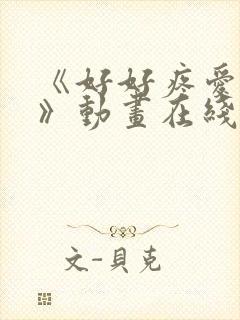 《好好疼愛
》動畫在綫
文-貝克